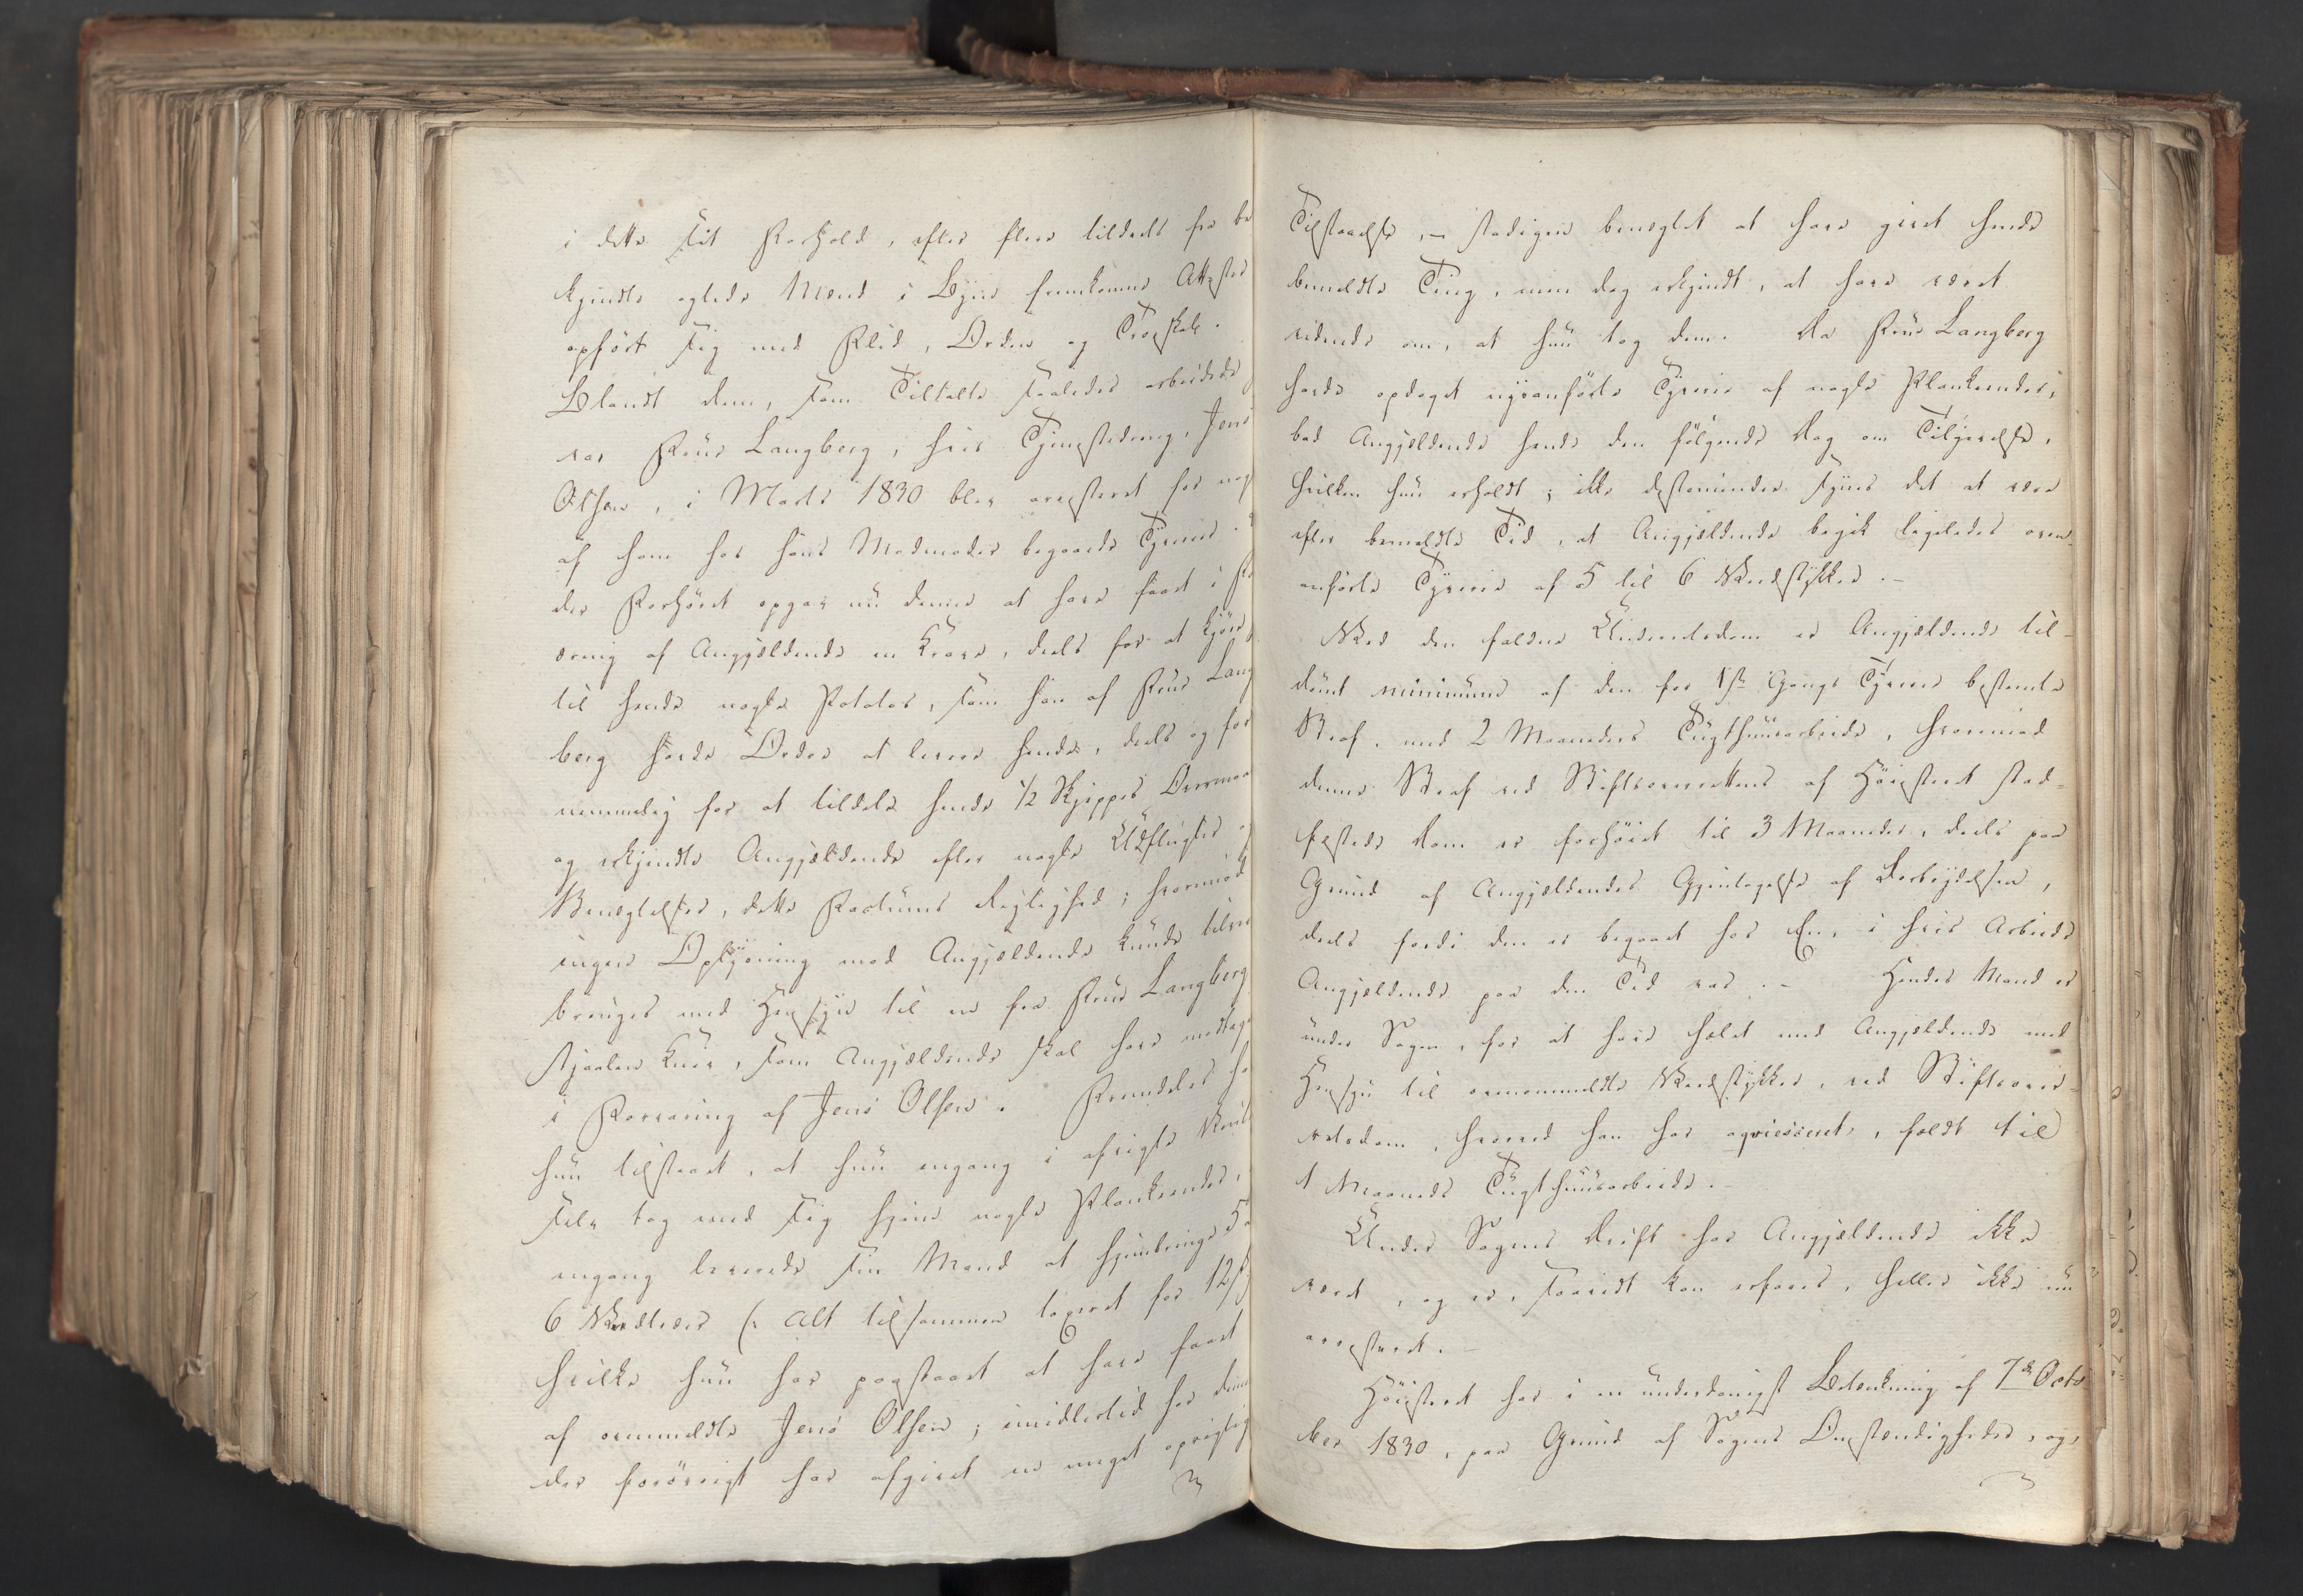 i dette sit Forhold, efter flere tildeels fra be
kjendte agtede Mænd i Byen fremkomne Attester
opført sig med Flid, Orden og Troeskab.
Blandt dem, som Tiltalte saaledes arbeidede
var Frue Langberg, hvis Tjenestedreng, Jens
Olsen, i Marts 1830 blev arresteret for nog
af ham hos hans Madmoder begaaede Tyverier.
der Forhøret opgav nu denne at have faaet i F
æring af Angjældende en Krave, deels for at kjøre
til hende nogle Potatos, som han af Frue Lang
berg havde Ordre at levere hende, deels og for
nemmelig for at tildele hende 1/2 Skjeppes Overmaa
og erkjendte Angjældende efter nogle Udflugter og
Benægtelser, dette Factums Rigtighed; hvorimod
ingen Oplysning mod Angjældende kunde tilve
bringes med Hensyn til en fra Frue Langberg
stjaalen Kniv, som Angjældende skal have modtage
i Forvaring af Jens Olsen. Fremdeles ha
hun tilstaaet, at hun engang i afvigte Vint
selv tog med sig hjem nogle Plankeender,
engang leverede sin Mand at hjembringe 5 a
6 Vedtræer (: alt tilsammen taxeret for 12 s
hvilke hun har paastaaet at have faaet
af ovenmeldte Jens Olsen; imidlertid har denne
der forøvrigt har afgivet en meget oprigtig
Tilstaaelse, – stadigen benægtet at have givet hende
bemeldte Ting, men dog erkjendt, at have været
vidende om, at hun tog dem. Da Frue Langberg
havde opdaget nysanførte Tyverie af nogle Plankeender,
bad Angjældende hende den følgende Dag om Tilgivelse,
hvilken hun erholdt; ikke destomindre synes det at være
efter bemeldte Tid, at Angjældende begik ligeledes oven-
anførte Tyverie af 5 til 6 Vedstykker. –
Ved den faldne Underretsdom er Angjældende til-
dømt minimum af den for 1ste Gangs Tyverie bestemte
Straf, med 2 Maaneders Tugthuusarbeide, hvorimod
denne Straf ved Stiftsoverrettens af Høiesteret stad-
fæstede Dom er forhøiet til 3 Maaneder, deels paa
Grund af Angjældendes Gjentagelse af Forbrydelsen,
deels fordi den er begaaet hos En, i hvis Arbeide
Angjældende paa den Tid var. – Hendes Mand er
under Sagen, for at have hælet med Angjældende med
Hensyn til ovenommeldte Vedstykker, ved Stiftsover-
retsdom, hvorved han har acqviesceret, fældt til
1 Maaneds Tugthuusarbeide. –
Under Sagens Drift har Angjældende ikke
været, og er, saavidt kan erfares, heller ikke nu
arresteret. –
Høiesteret har i en underdanigst Betænkning af 7de Octo
ber 1830, paa Grund af Sagens Omstændigheder, og,